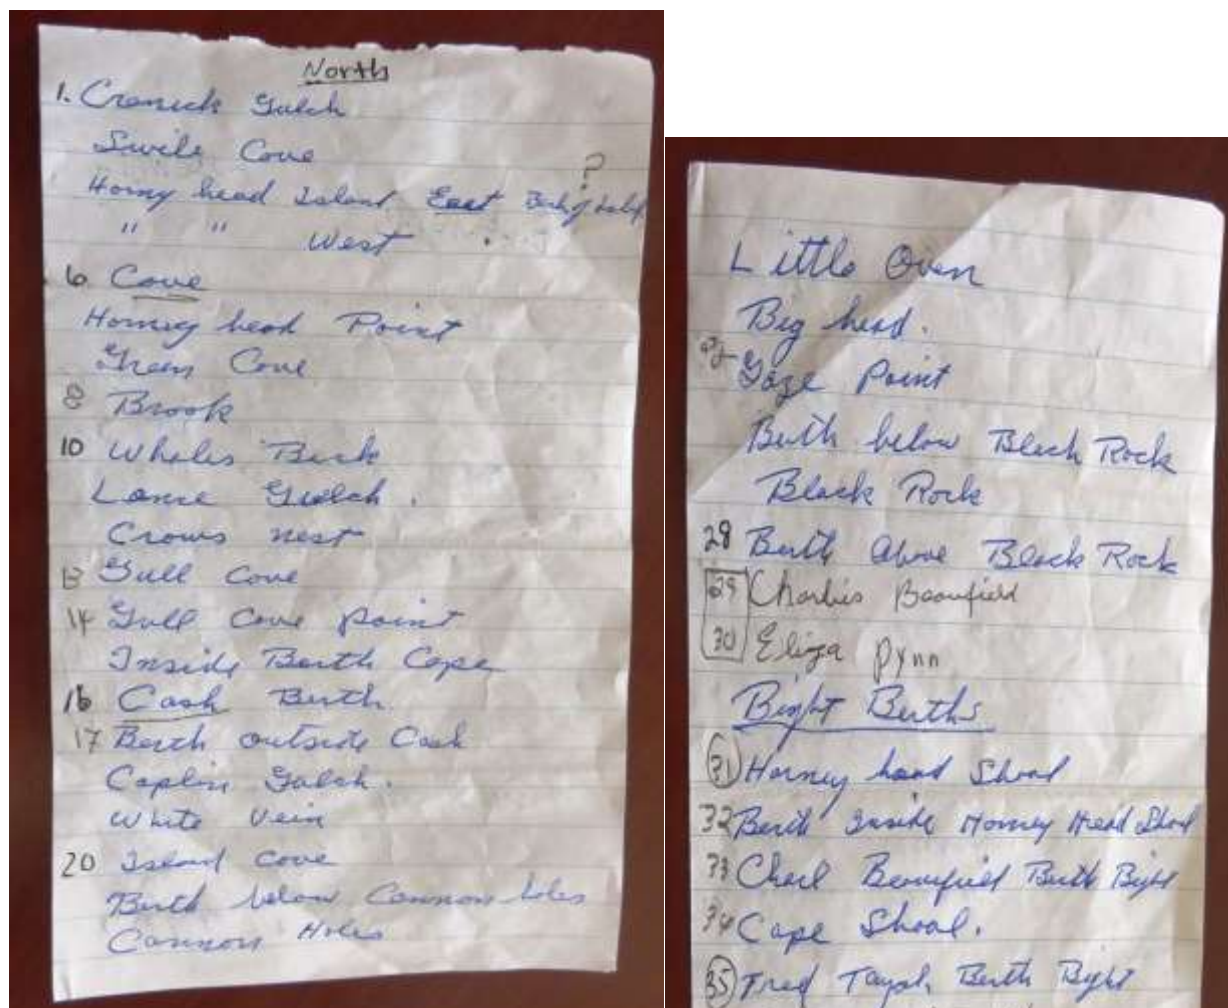 North
1. Cranick Gulch
Swile Cove
?
Horny head Island East
" " West
6 Cove
Horney head Point
Green Cove
8 Brook
10 Whales Back
Lance Gulch.
Crows nest
13 Gull Cove
14 Gull Cove Point
Inside Berth Cape
16 Cash Berth
17 Berth outside Cash
Caplin Gulch.
White Vein
20 Island Cove
Berth below Cannon holes
Cannon Holes
Little Oven
Big head.
Gaze Point
Berth below Black Rock
Black Rock
28 Berth above Black Rock
29 Charlies
30 Eliza Pynn
Bight Berths
31 Horney head Shoal
32 Berth Inside Horney Head Shoal
33 Charl Berth Bight
34 Cape Shoal.
35 Fred Berth Bight